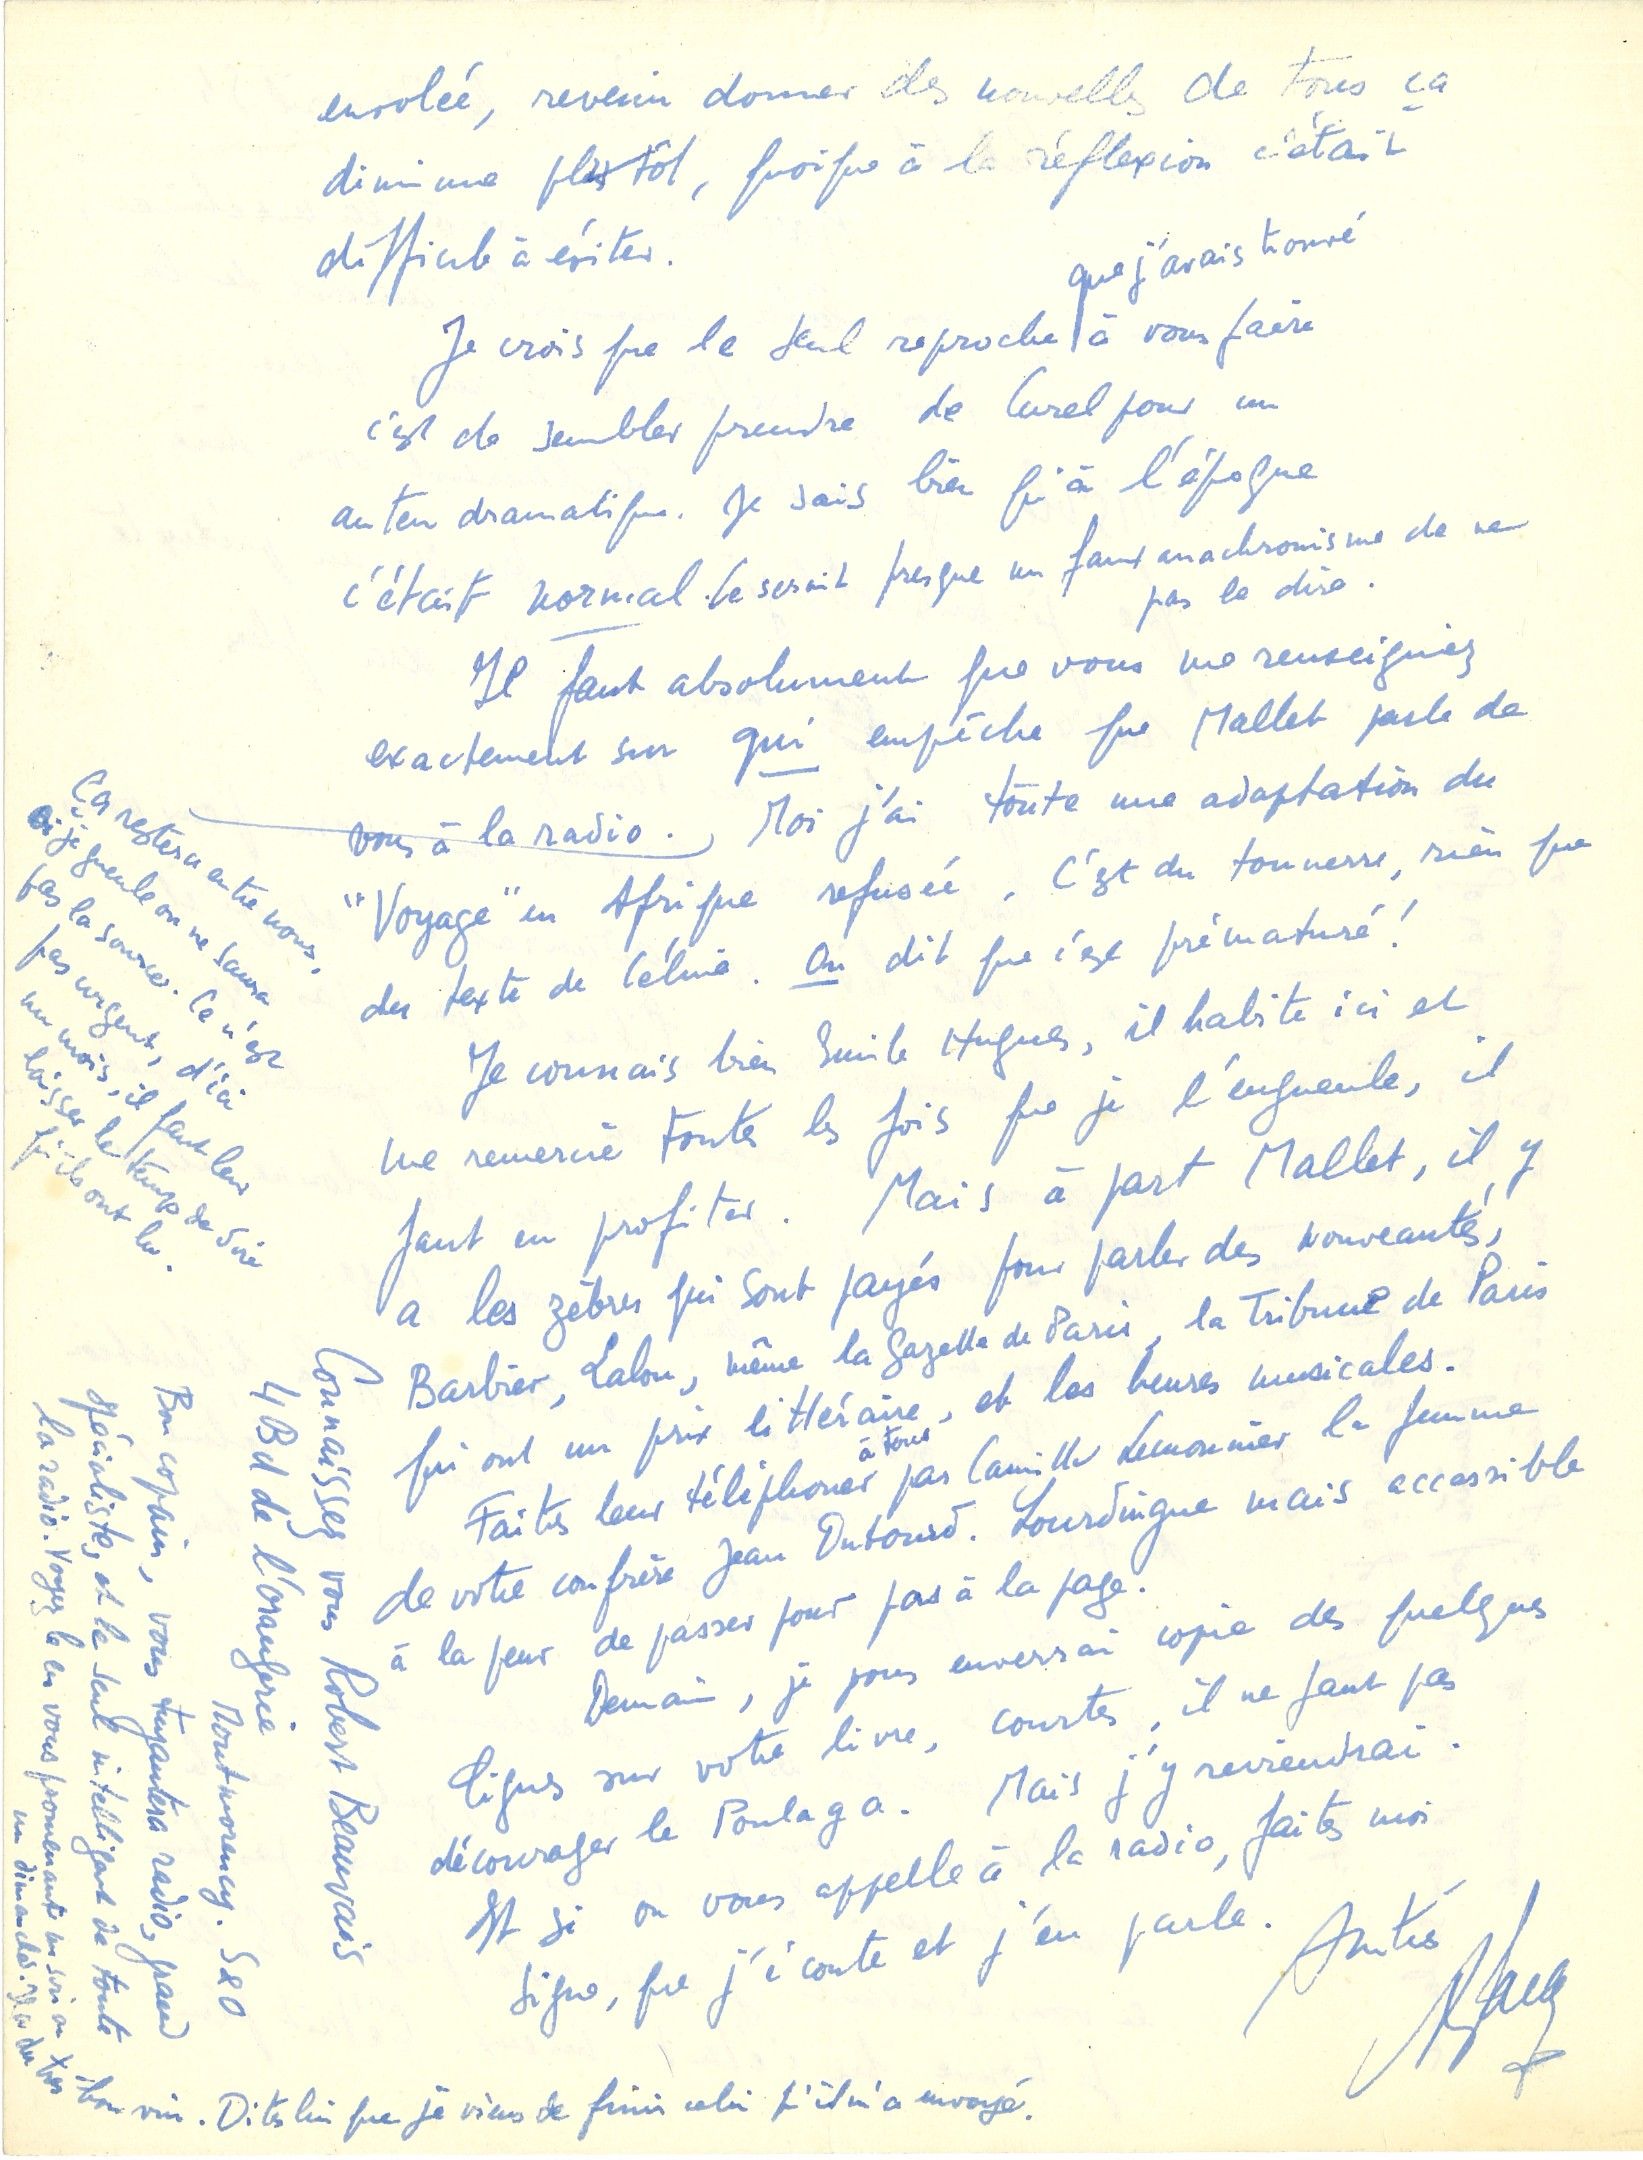 envolée, revenir donner des nouvelles de tous ça
diminue plus tôt, quoique à la réflexion c'était
difficile à éviter.
que j'avais trouvé
Je crois que le seul reproche à vous faire
c'est de sembler prendre de Curel pour un
auteur dramatique. Je sais bien qu'à l'époque
c'était normal. Ce serait presque un faux anachronisme de ne
pas le dire.
Il faut absolument que vous me renseigniez
exactement sur qui empêche que Mallet parle de
vous à la radio. Moi j'ai toute une adaptation du
"Voyage" en Afrique refusée. C'est du tonnerre, rien que
du texte de Céline. On dit que c'est prématuré!
Je connais bien Emile Hugues, il habite ici et
me remercie toutes les fois que je l'engueule, il
faut en profiter. Mais à part Mallet, il y
a les zèbres qui sont payés pour parler des nouveautés,
Barbier, Lalou, même la Gazette de Paris, la Tribune de Paris
qui ont un prix littéraire, et les heures musicales.
à tous
Faites leur téléphoner par Camille Lemonnier la femme
de votre confrère Jean Dutourd. Lourdingue mais accessible
à la peur de passer pour pas à la page.
Demain, je vous enverrai copie des quelques
lignes sur votre livre, courtes, il ne faut pas
décourager le Poulaga. Mais j'y reviendrai.
Et si on vous appelle à la radio, faites moi
signe, que j'écoute et j'en parle.
Amitiés
Ça restera entre nous,
si je gueule on ne saura
pas la source. Ce n'est
pas urgent, d'ici
un mois, il faut leur
laisser le temps de dire
qu'ils ont lu.
Connaissez vous Robert Beauvais
4 Bd de l'orangerie
Montmorency. S&O
Bon copain, vous tuyautera radio, grand
spécialiste, et le seul intelligent de toute
la radio. Voyez le en vous promenant un
un dimanche. Il a du très
bon vin. Dites lui que je viens de finir celui qu'il m'a envoyé.